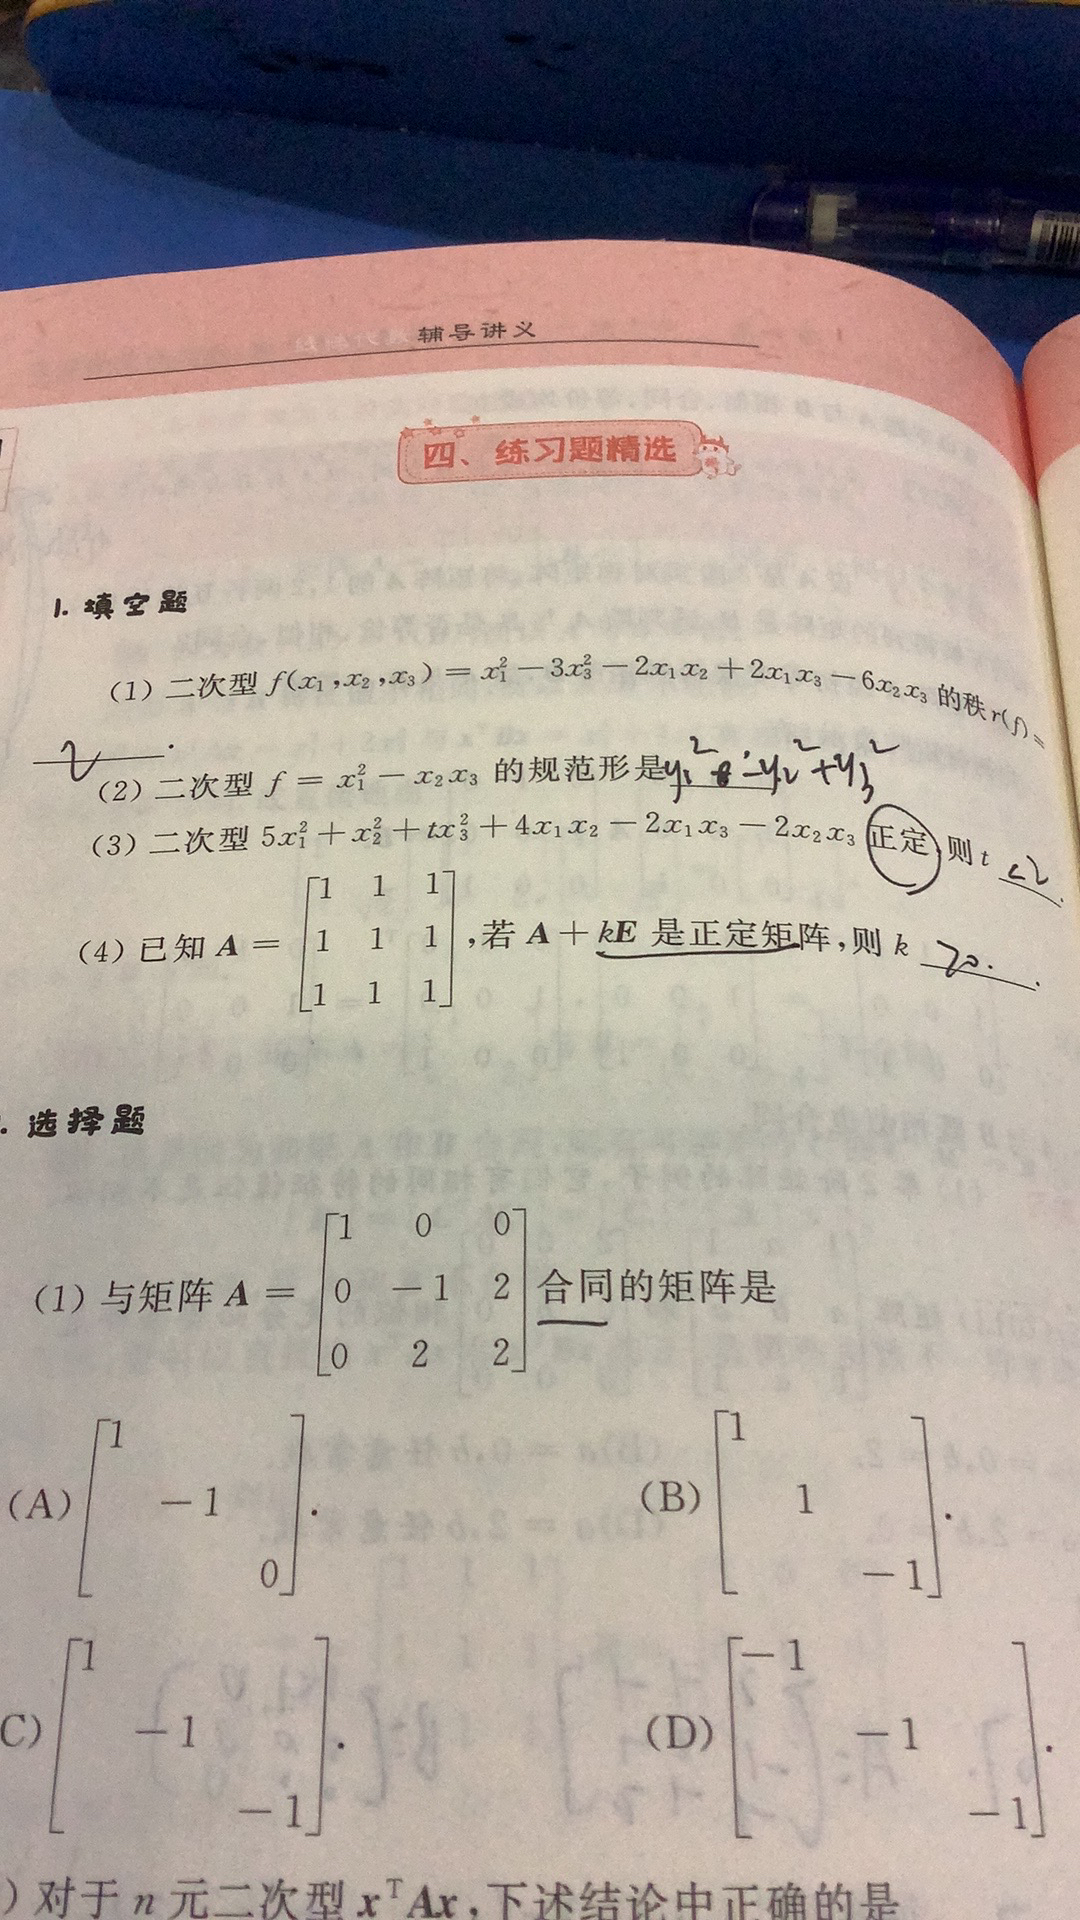 辅导讲义
四、练习题精选
1. 填空题
(1) 二次型 f(x₁,x₂,x₃) = x₁² − 3x₃² − 2x₁x₂ + 2x₁x₃ − 6x₂x₃ 的秩 r(f) =
2 .
(2) 二次型 f = x₁² − x₂x₃ 的规范形是 y₁² − y₂² + y₃²
(3) 二次型 5x₁² + x₂² + tx₃² + 4x₁x₂ − 2x₁x₃ − 2x₂x₃ 正定,则 t <2 .
(4) 已知 A = [1 1 1; 1 1 1; 1 1 1] ,若 A + kE 是正定矩阵,则 k >0. .
. 选择题
(1) 与矩阵 A = [1 0 0; 0 −1 2; 0 2 2] 合同的矩阵是
(A) [1 −1 0]. (B) [1 1 −1].
C) [1 −1 −1]. (D) [−1 −1 −1].
) 对于 n 元二次型 xᵀAx,下述结论中正确的是